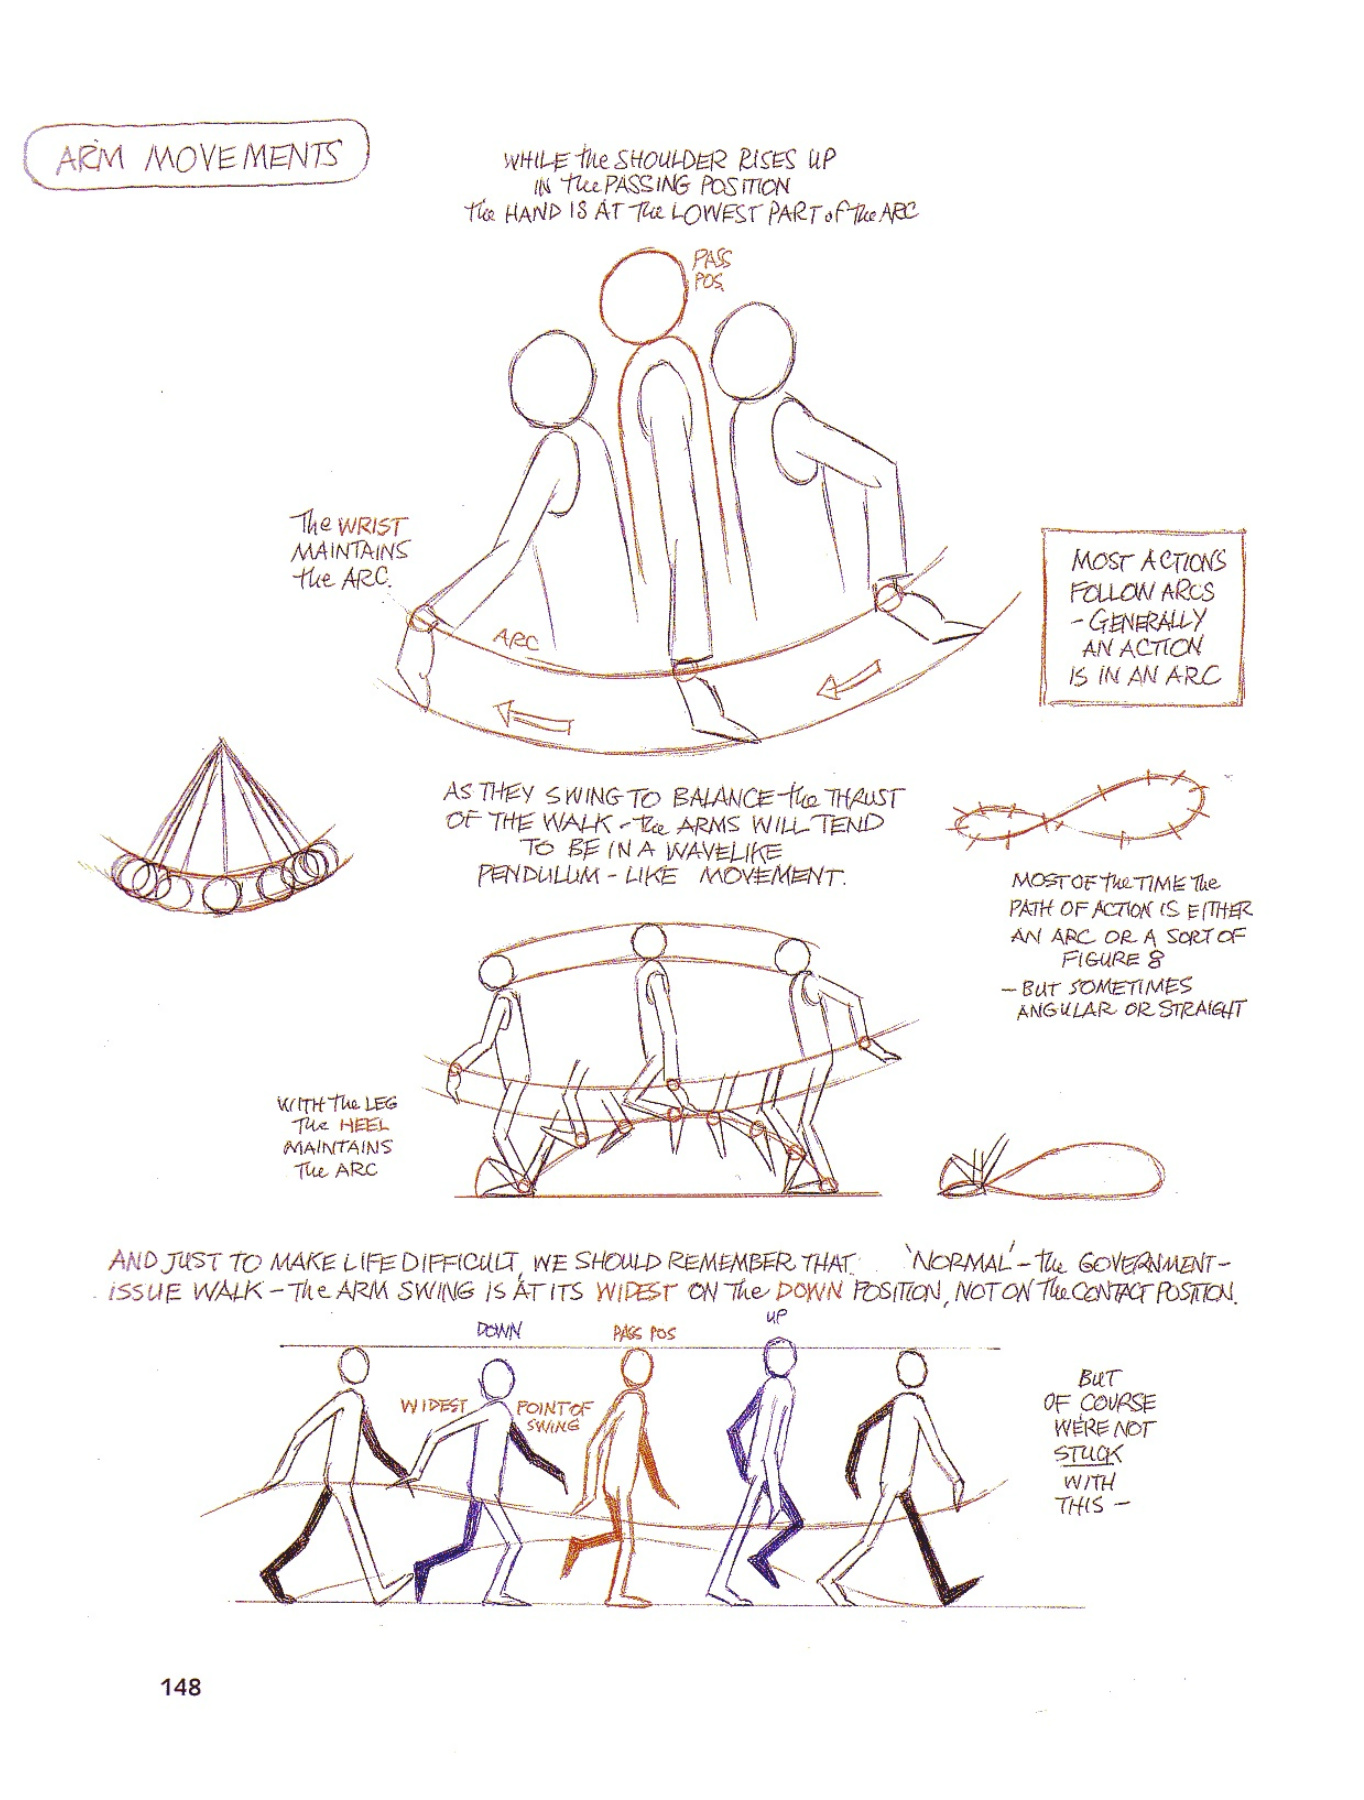 ARM MOVEMENTS
WHILE the SHOULDER RISES UP
IN the PASSING POSITION
the HAND IS AT the LOWEST PART of the ARC
PASS
POS.
The WRIST
MAINTAINS
the ARC.
ARC
MOST ACTIONS
FOLLOW ARCS
- GENERALLY
AN ACTION
IS IN AN ARC
AS THEY SWING TO BALANCE the THRUST
OF THE WALK - the ARMS WILL TEND
TO BE IN A WAVELIKE
PENDULUM - LIKE MOVEMENT.
MOST OF the TIME the
PATH OF ACTION IS EITHER
AN ARC OR A SORT OF
FIGURE 8
- BUT SOMETIMES
ANGULAR OR STRAIGHT
WITH the LEG
the HEEL
MAINTAINS
the ARC
AND JUST TO MAKE LIFE DIFFICULT, WE SHOULD REMEMBER THAT 'NORMAL' - the GOVERNMENT -
ISSUE WALK - the ARM SWING IS AT ITS WIDEST ON the DOWN POSITION, NOT ON the CONTACT POSITION.
DOWN
PASS POS
UP
WIDEST POINT OF
SWING
BUT
OF COURSE
WE'RE NOT
STUCK
WITH
THIS -
148